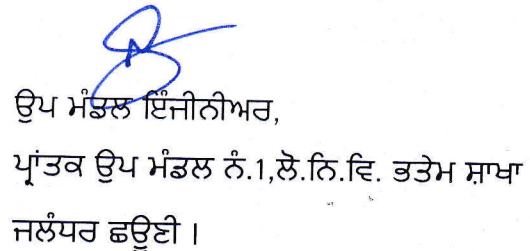 ਉਪ ਮੰਡਲ ਇੰਜੀਨੀਅਰ,
ਪ੍ਰਾਂਤਕ ਉਪ ਮੰਡਲ ਨੰ.1,ਲੋ.ਨਿ.ਵਿ. ਭਤੇਮ ਸ਼ਾਖਾ
ਜਲੰਧਰ ਛਉਣੀ ।